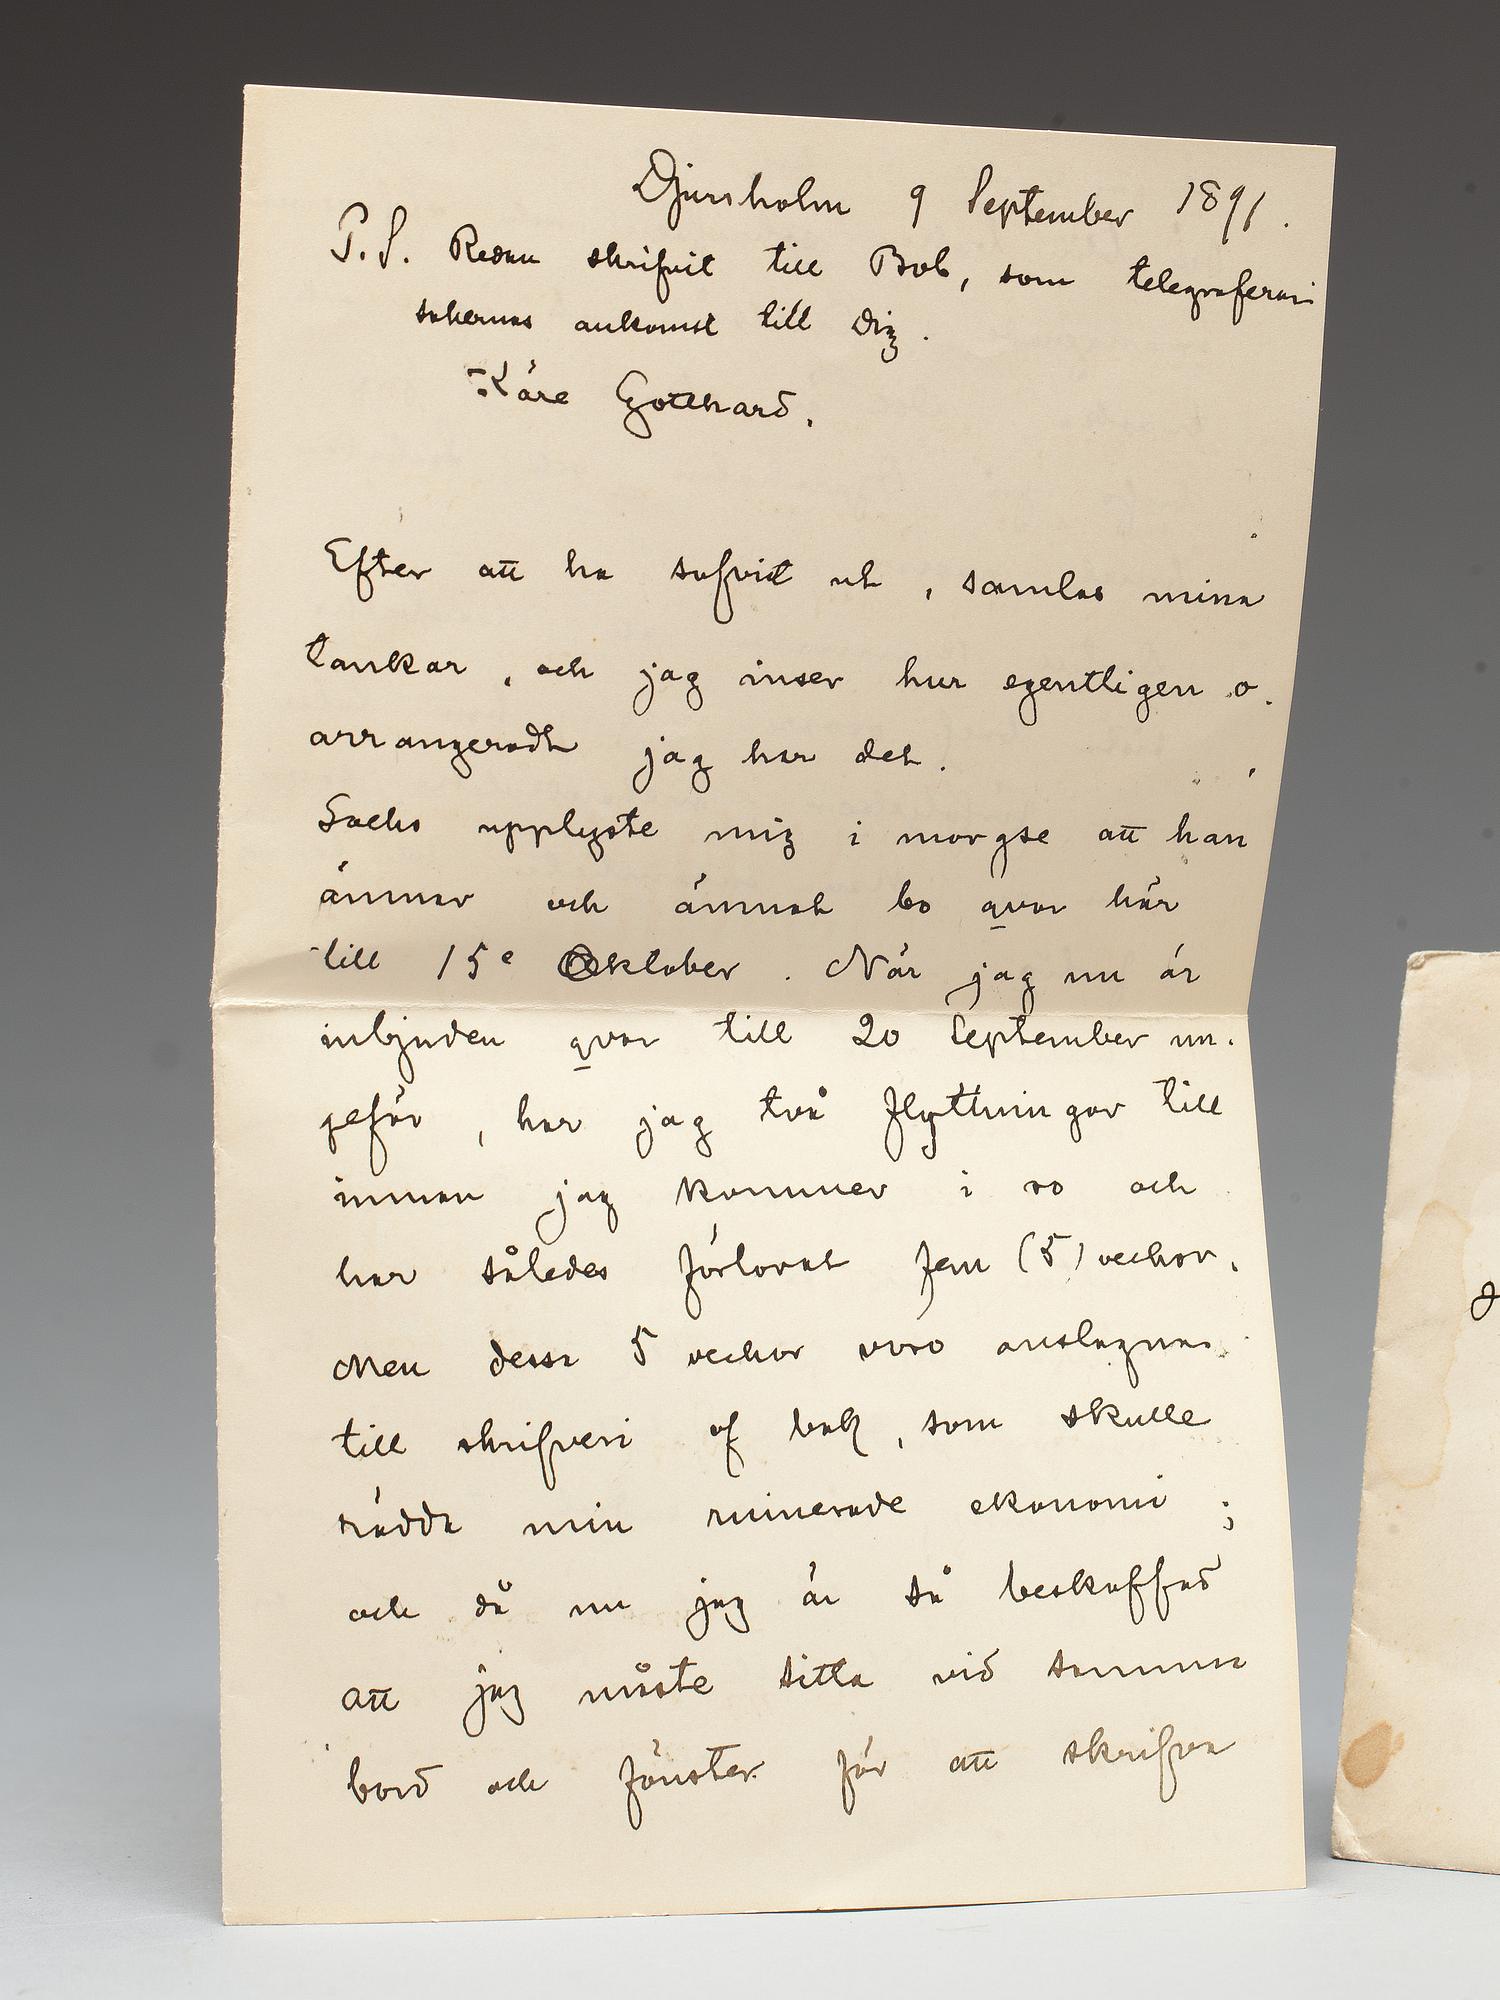 Djursholm 9 September 1891.
P.S. Redan skrifvit till Bob, som telegraferar
sakernas ankomst till Dig.
Käre Gotthard,
Efter att ha sofvit ut, samlas mina
tankar, och jag inser hur egentligen o.
arrangeradt jag har det.
Sachs upplyste mig i morgse att han
ämnar och ämnat bo qvar här
till 15e Oktober. När jag nu är
inbjuden qvar till 20 September un.
gefär, har jag två flyttningar till
innan jag kommer i ro och
har således förlorat fem (5) veckor.
Men dessa 5 veckor voro anslagna
till skrifveri af bok, som skulle
rädda min ruinerade ekonomi;
och då nu jag är så beskaffad
att jag måste sitta vid samma
bord och fönster för att skrifva